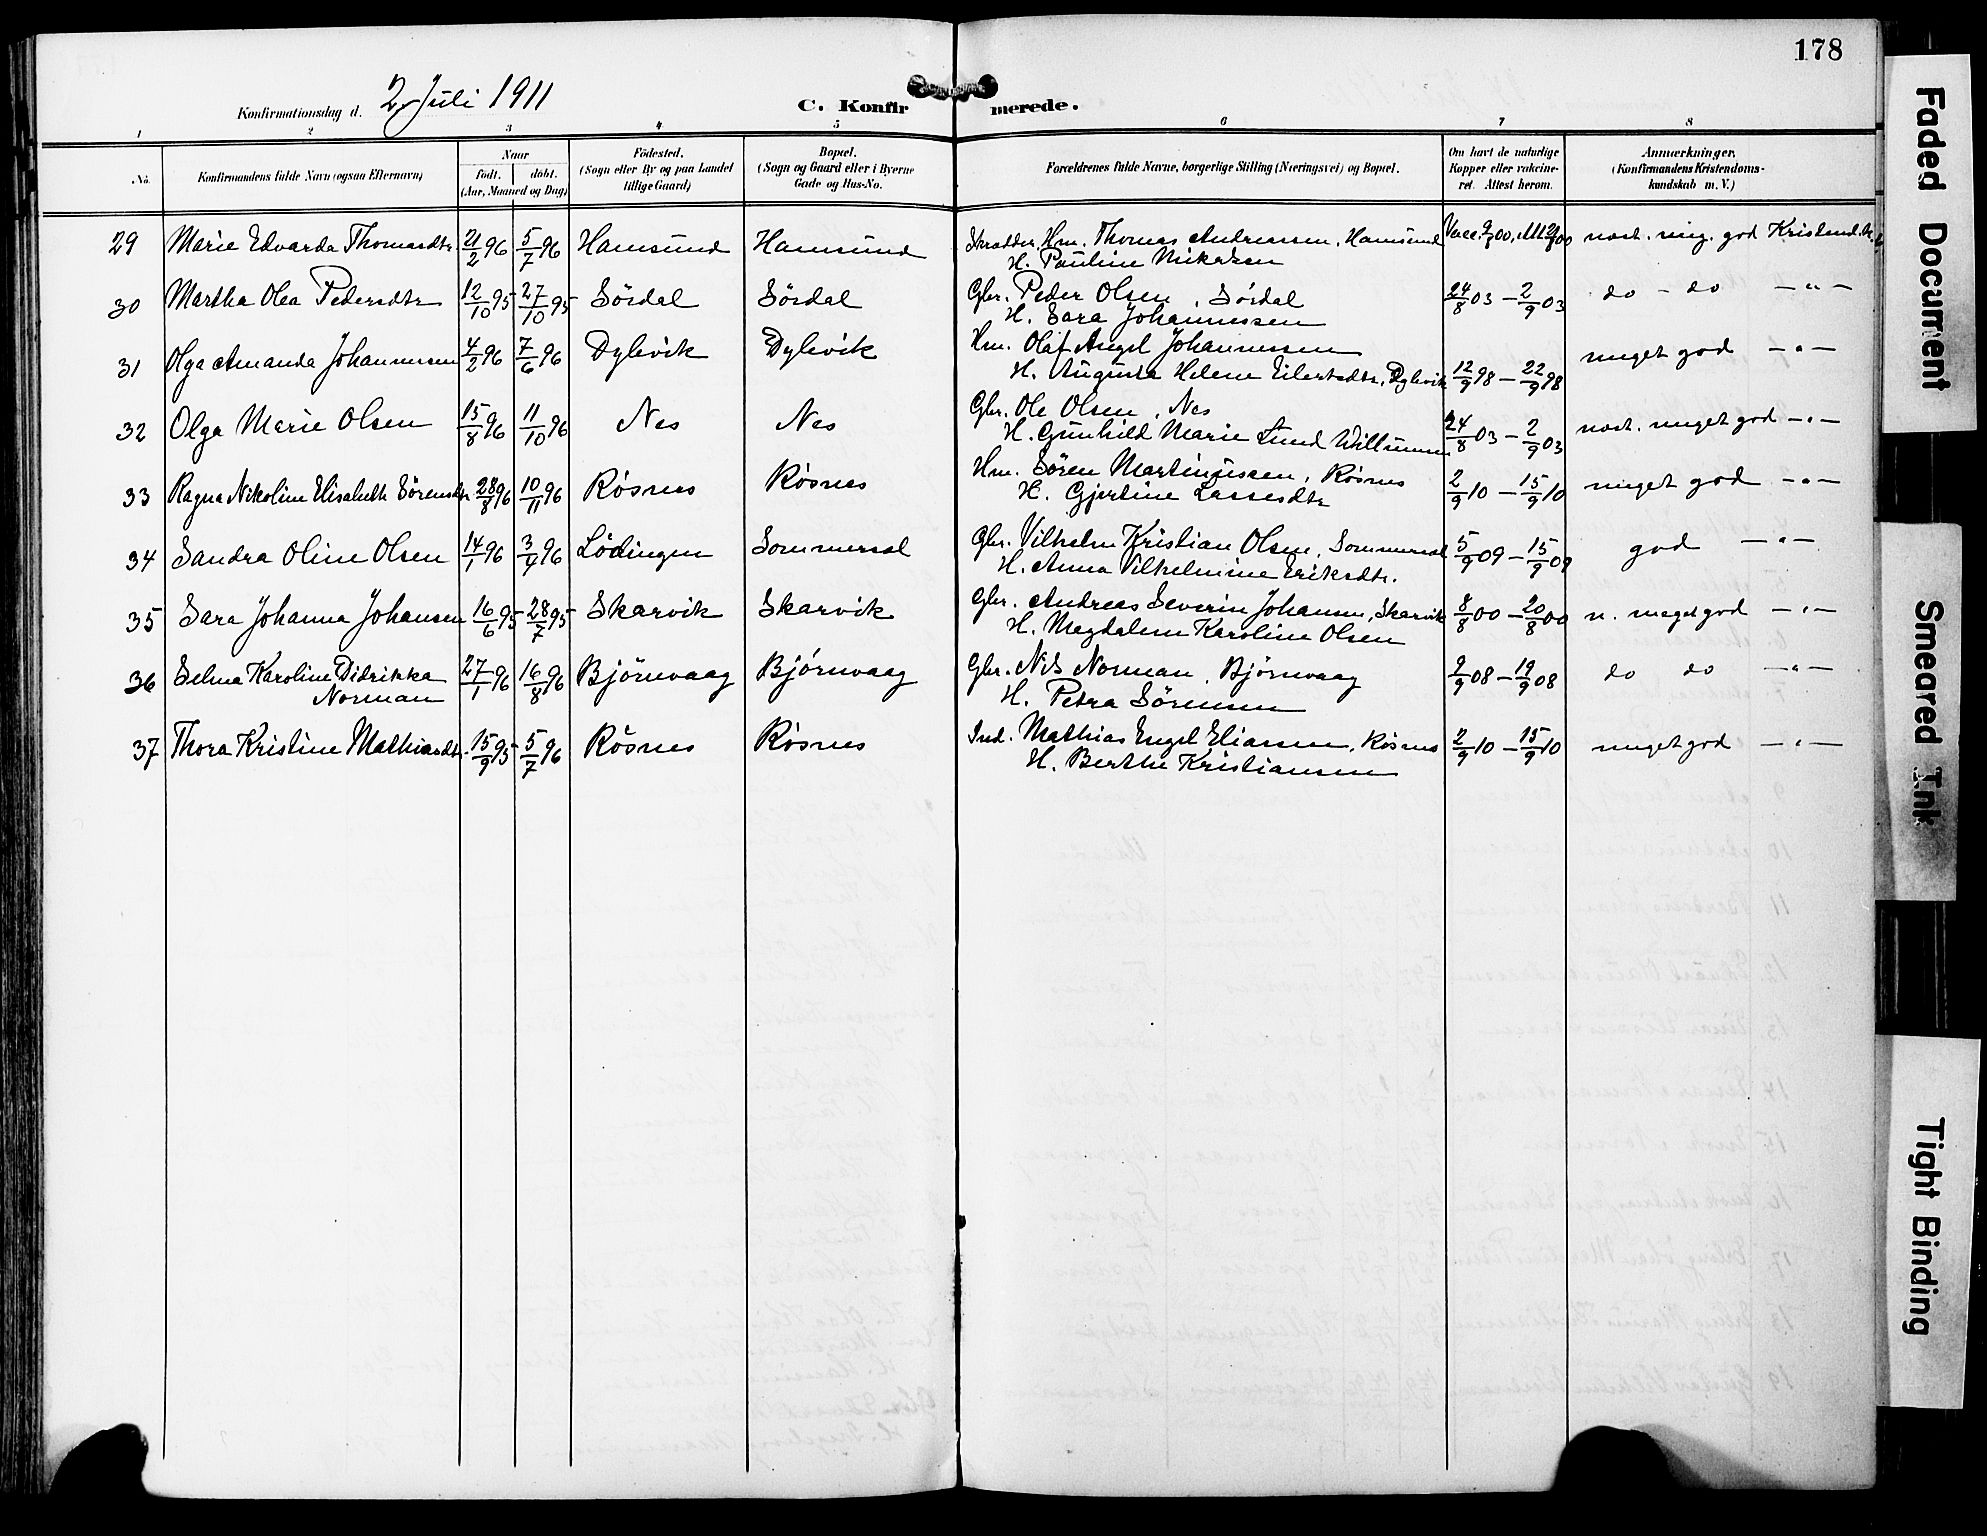 178
Konfirmationsdag d. 2 Juli 1911
C. Konfirmerede.
1 2 3 4 5 6 7 8
No.
Konfirmandens fulde Navn (ogsaa Efternavn)
Naar
født. døbt.
(Aar, Maaned og Dag)
Fødested.
(Sogn eller By og paa Landet
tillige Gaard)
Bopæl.
(Sogn og Gaard eller i Byerne
Gade og Hus-No.
Forældrenes fulde Navne, borgerlige Stilling (Næringsvei) og Bopæl.
Om havt de naturlige
Kopper eller vakcine-
ret. Attest herom.
Anmærkninger.
(Konfirmandens Kristendoms-
kundskab m. V.)
29 Marie Edvarda Thomasdtr. 21/2 96 5/7 96 Hamsund Hamsund Skrædder. Hm. Thomas Andreassen, Hamsund Vacc. 00, Att. 00 nost. meg. god Kristend.
H. Pauline
30 Martha Olea Pedersdtr 12/10 95 27/10 95 Sördal Sördal Gbr. Peder Olsen, Sördal 24/8 03 – 2/9 03 do – do – " –
H. Sara Johannessen
31 Olga Amanda Johannessen 4/2 96 7/6 96 Dybvik Dybvik Hm. Olaf Angel Johannessen
H. Augusta Helene Eilertsdtr, Dybvik 12/9 98 – 22/9 98 meget god – " –
32 Olga Marie Olsen 15/8 96 11/10 96 Nes Nes Gbr. Ole Olsen, Nes
H. Gunhild Marie Lund Willumsen 24/8 03 – 2/9 03 nost. meget god – " –
33 Ragna Nikoline Elisabeth Sörensdtr 28/8 96 10/11 96 Rösnes Rösnes Hm. Sören Martinussen, Rösnes 2/9 10 – 15/9 10 meget god – " –
H. Gjertine Lassesdtr
34 Sandra Oline Olsen 14/1 96 3/4 96 Lödingen Sommersel Gbr. Vilhelm Kristian Olsen, Sommersel 5/9 09 – 15/9 09 god – " –
H. Anna Vilhelmine Eriksdtr.
35 Sara Johanna Johansen 16/6 95 – 28/7 95 Skarvik Skarvik Gbr. Andreas Severin Johansen, Skarvik 8/8 00 – 20/8 00 n. meget god – " –
H. Magdalena Karoline Olsen
36 Selma Karoline Didrikka 27/1 96 16/8 96 Björnvaag Björnvaag Gbr. Nils Norman, Björnvaag 2/9 08 – 19/9 08 do do – " –
Norman H. Petra Sörensen
37 Thora Kristine Mathiasdtr. 15/9 95 5/7 96 Rösnes Rösnes Ind. Mathias Engel Eliassen, Rösnes 2/9 10 – 15/9 10 meget god – " –
H. Berthe Kristiansen
Faded Document
Smeared Ink
Tight Binding